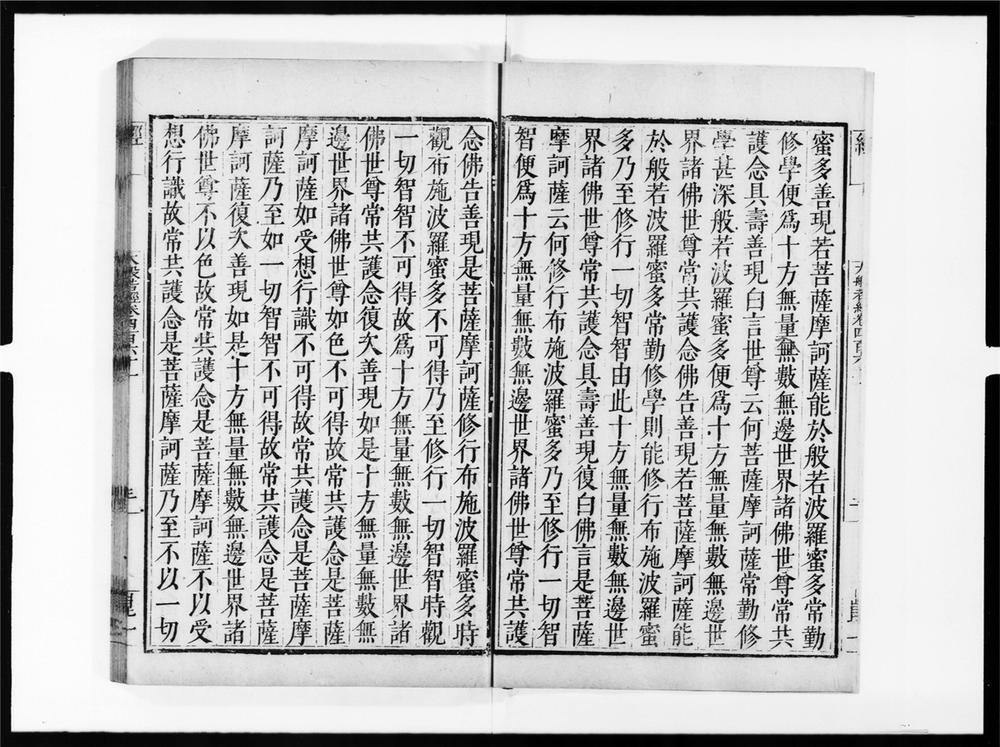 蜜多善現若菩薩摩訶薩能於般若波羅蜜多常勤
修學便爲十方無量無數無邊世界諸佛世尊常共
護念具壽善現白言世尊云何菩薩摩訶薩常勤修
學甚深般若波羅蜜多便爲十方無量無數無邊世
界諸佛世尊常共護念佛告善現若菩薩摩訶薩能
於般若波羅蜜多常勤修學則能修行布施波羅蜜
多乃至修行一切智智由此十方無量無數無邊世
界諸佛世尊常共護念具壽善現復白佛言是菩薩
摩訶薩云何修行布施波羅蜜多乃至修行一切智
智便爲十方無量無數無邊世界諸佛世尊常共護
念佛告善現是菩薩摩訶薩修行布施波羅蜜多時
觀布施波羅蜜多不可得乃至修行一切智智時觀
一切智智不可得故爲十方無量無數無邊世界諸
佛世尊常共護念復次善現如是十方無量無數無
邊世界諸佛世尊如色不可得故常共護念是菩薩
摩訶薩如受想行識不可得故常共護念是菩薩摩
訶薩乃至如一切智智不可得故常共護念是菩薩
摩訶薩復次善現如是十方無量無數無邊世界諸
佛世尊不以色故常共護念是菩薩摩訶薩不以受
想行識故常共護念是菩薩摩訶薩乃至不以一切
經
大般若經卷四百六十